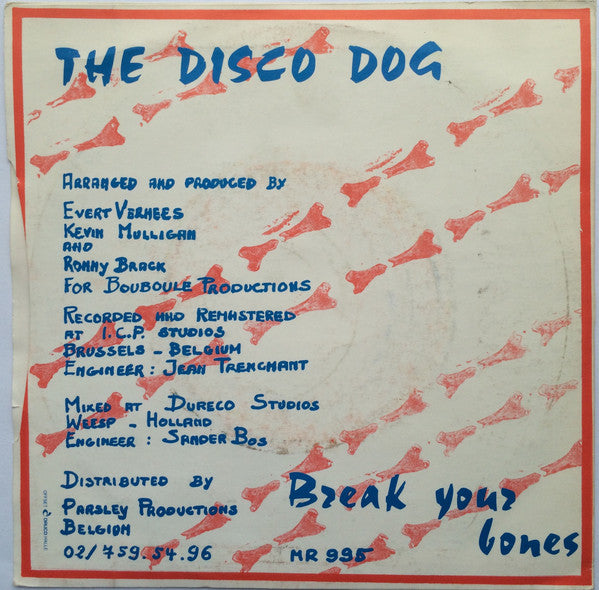 THE DISCO DOG
ARRANGED AND PRODUCED BY
EVERT VERHEES
KEVIN MULLIGAN
AND
RONNY BRACK
FOR BOUBOULE PRODUCTIONS
RECORDED AND REMASTERED
AT I.C.P. STUDIOS
BRUSSELS - BELGIUM
ENGINEER : JEAN TRENCHANT
MIXED AT DURECO STUDIOS
WEESP - HOLLAND
ENGINEER : SANDER BOS
DISTRIBUTED BY
PARSLEY PRODUCTIONS
BELGIUM
02/759.54.96
MR 995
Break your
bones
OFFSET